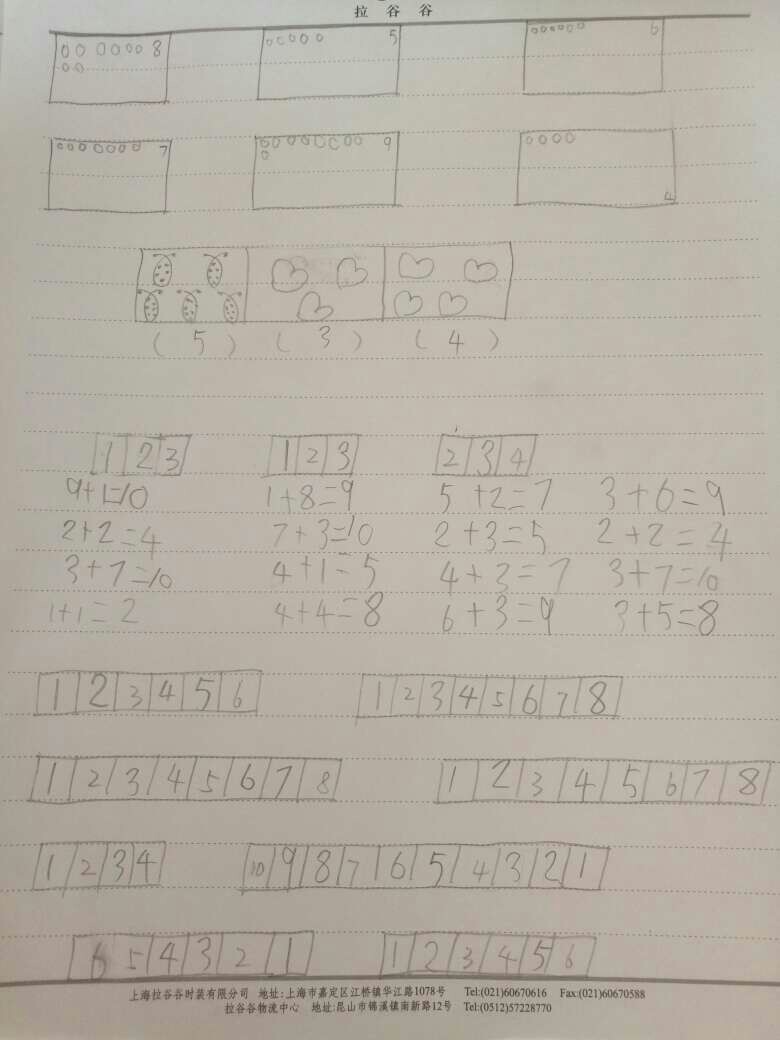 拉 谷 谷
8 5 6
7 9 4
( 5 ) ( 3 ) ( 4 )
1 2 3 1 2 3 2 3 4
9+1=10 1+8=9 5+2=7 3+6=9
2+2=4 7+3=10 2+3=5 2+2=4
3+7=10 4+1=5 4+3=7 3+7=10
1+1=2 4+4=8 6+3=9 3+5=8
1 2 3 4 5 6 1 2 3 4 5 6 7 8
1 2 3 4 5 6 7 8 1 2 3 4 5 6 7 8
1 2 3 4 10 9 8 7 6 5 4 3 2 1
6 5 4 3 2 1 1 2 3 4 5 6
上海拉谷谷时装有限公司 地址:上海市嘉定区江桥镇华江路1078号 Tel:(021)60670616 Fax:(021)60670588
拉谷谷物流中心 地址:昆山市锦溪镇南新路12号 Tel:(0512)57228770